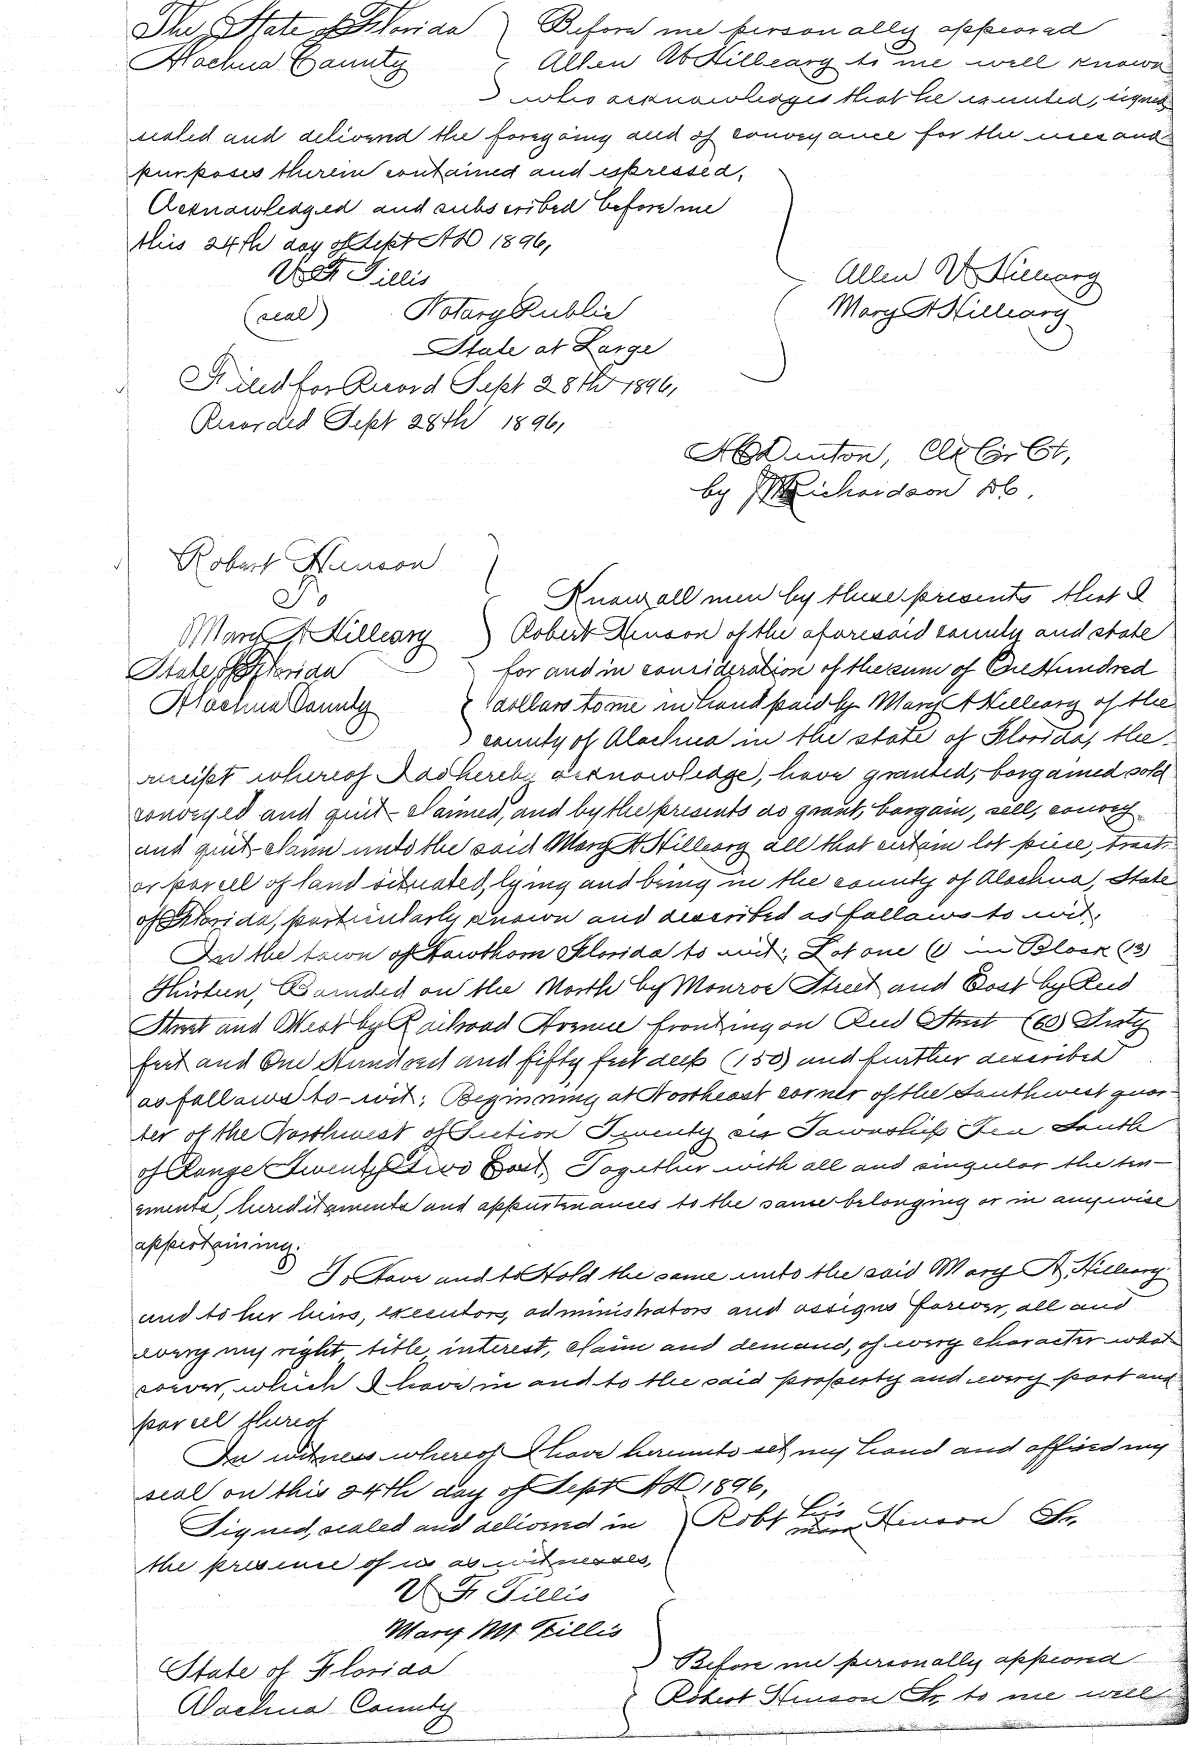 The State of Florida Before me personally appeared
Alachua County Allen W Hilleary to me well known
who acknowledges that he executed, signed
sealed and delivered the foregoing deed of conveyance for the uses and
purposes therein contained and expressed,
Acknowledged and subscribed before me
this 24th day of Sept AD 1896,
Allen W Hilleary
Mary A Hilleary
W F Tillis
(seal) Notary Public
State at Large
Filed for Record Sept 28th 1896,
Recorded Sept 28th 1896,
Denton, Clk Cir Ct,
by Richardson DC.
Robert Henson
To
Mary A Hilleary
State of Florida
Alachua County
Know all men by these presents that I
Robert Henson of the aforesaid county and state
for and in consideration of the sum of One Hundred
dollars to me in hand paid by Mary A Hilleary of the
county of Alachua in the state of Florida, the
receipt whereof I do hereby acknowledge, have granted, bargained sold
conveyed and quit-claimed, and by the presents do grant, bargain, sell, convey
and quit-claim unto the said Mary A Hilleary all that certain lot piece, tract
or parcel of land situated, lying and being in the county of Alachua, State
of Florida, particularly known and described as follows to wit;
In the town of Hawthorn Florida to wit; Lot one (1) in Block (13)
Thirteen, Bounded on the North by Monroe Street and East by Reid
Street and West by Railroad Avenue fronting on Reid Street (60) Sixty
feet and One Hundred and fifty feet deep (150) and further described
as follows to-wit; Beginning at Northeast corner of the Southwest quar-
ter of the Northwest of Section Twenty six Township Ten South
of Range Twenty Two East, Together with all and singular the ten-
ements, hereditaments and appurtenances to the same belonging or in anywise
appertaining.
To Have and to Hold the same unto the said Mary A, Hilleary
and to her heirs, executors, administrators and assigns forever, all and
every my right, title, interest, claim and demand, of every character what
soever, which I have in and to the said property and every part and
parcel thereof
In witness whereof I have hereunto set my hand and affixed my
seal on this 24th day of Sept AD 1896,
Signed, sealed and delivered in Robt his mark Henson Sr,
the presence of us as witnesses,
W F Tillis
Mary M Tillis
State of Florida Before me personally appeared
Alachua County Robert Henson Sr, to me well